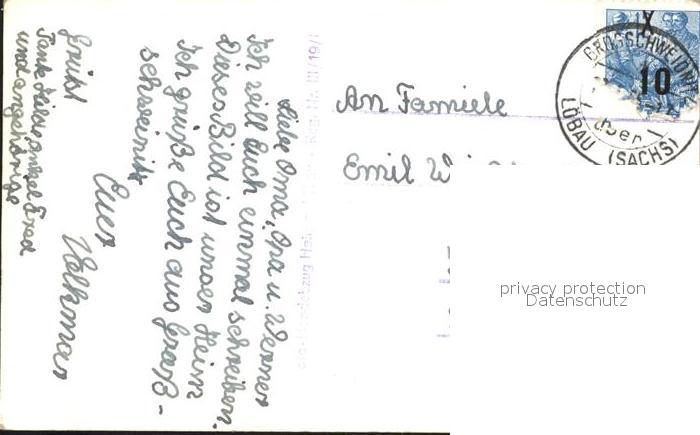 Liebe Oma, Opa u. Werner
Ich will Euch einmal schreiben.
Dieses Bild ist unser Heim
Ich grüße Euch aus Groß-
schweinitz
Euer
Volkmar
Grüßt
Tante Hilde, Onkel Fred
und angehörige
An Famiele
Emil W
10
GROSSCHWEIDN
über
LÖBAU (SACHS)
III/19/1
privacy protection
Datenschutz